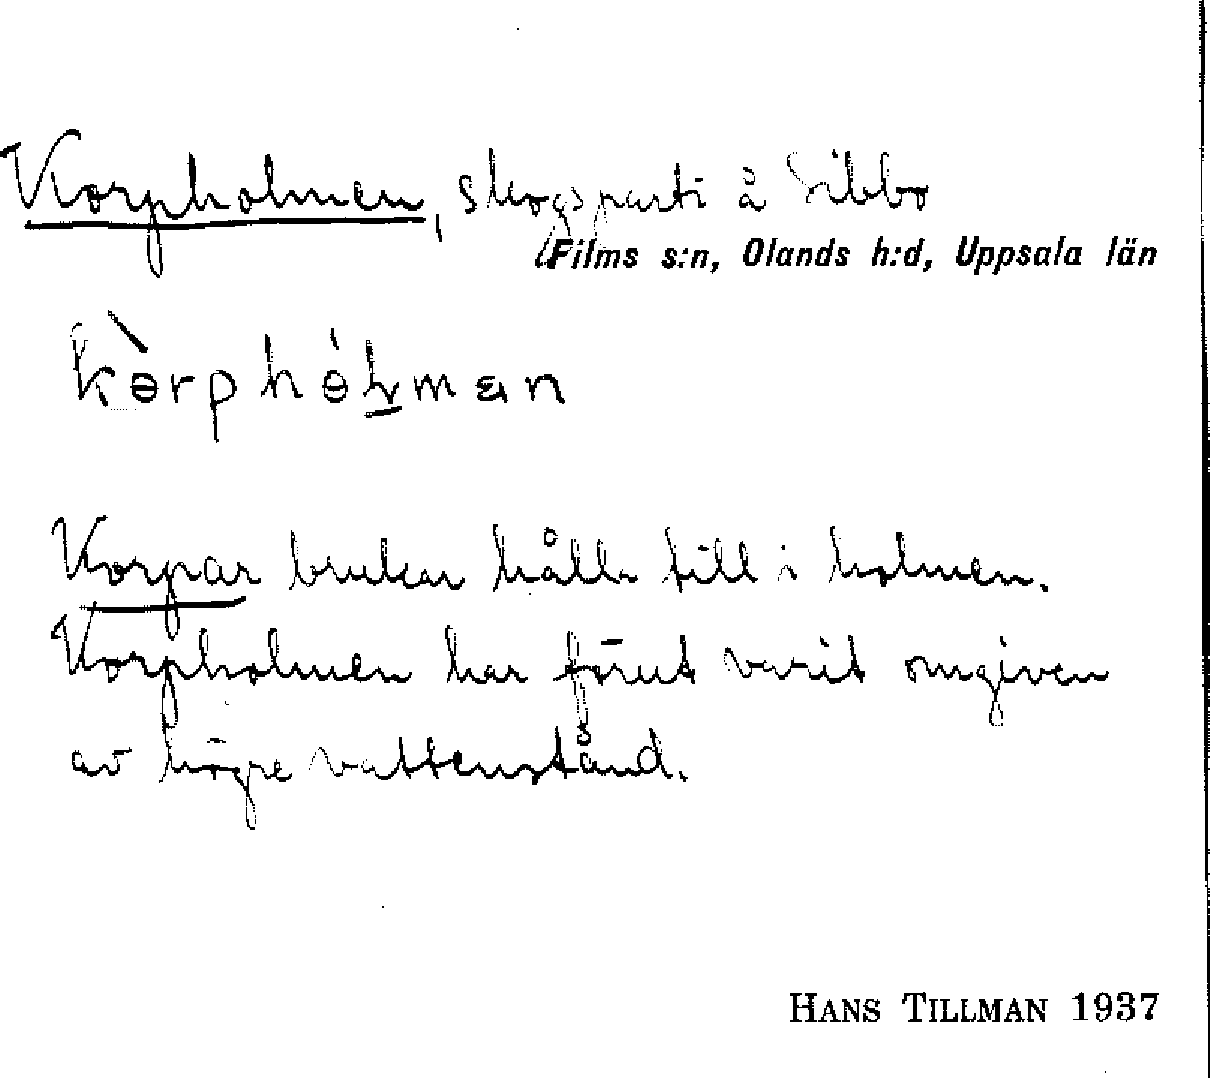 Korpholmen, skogsparti å Sibbo
Films s:n, Olands h:d, Uppsala län
kɵ̀rphɵ́lman
Korpar brukar hålla till i holmen.
Korpholmen har förut varit omgiven
av högre vattenstånd.
HANS TILLMAN 1937